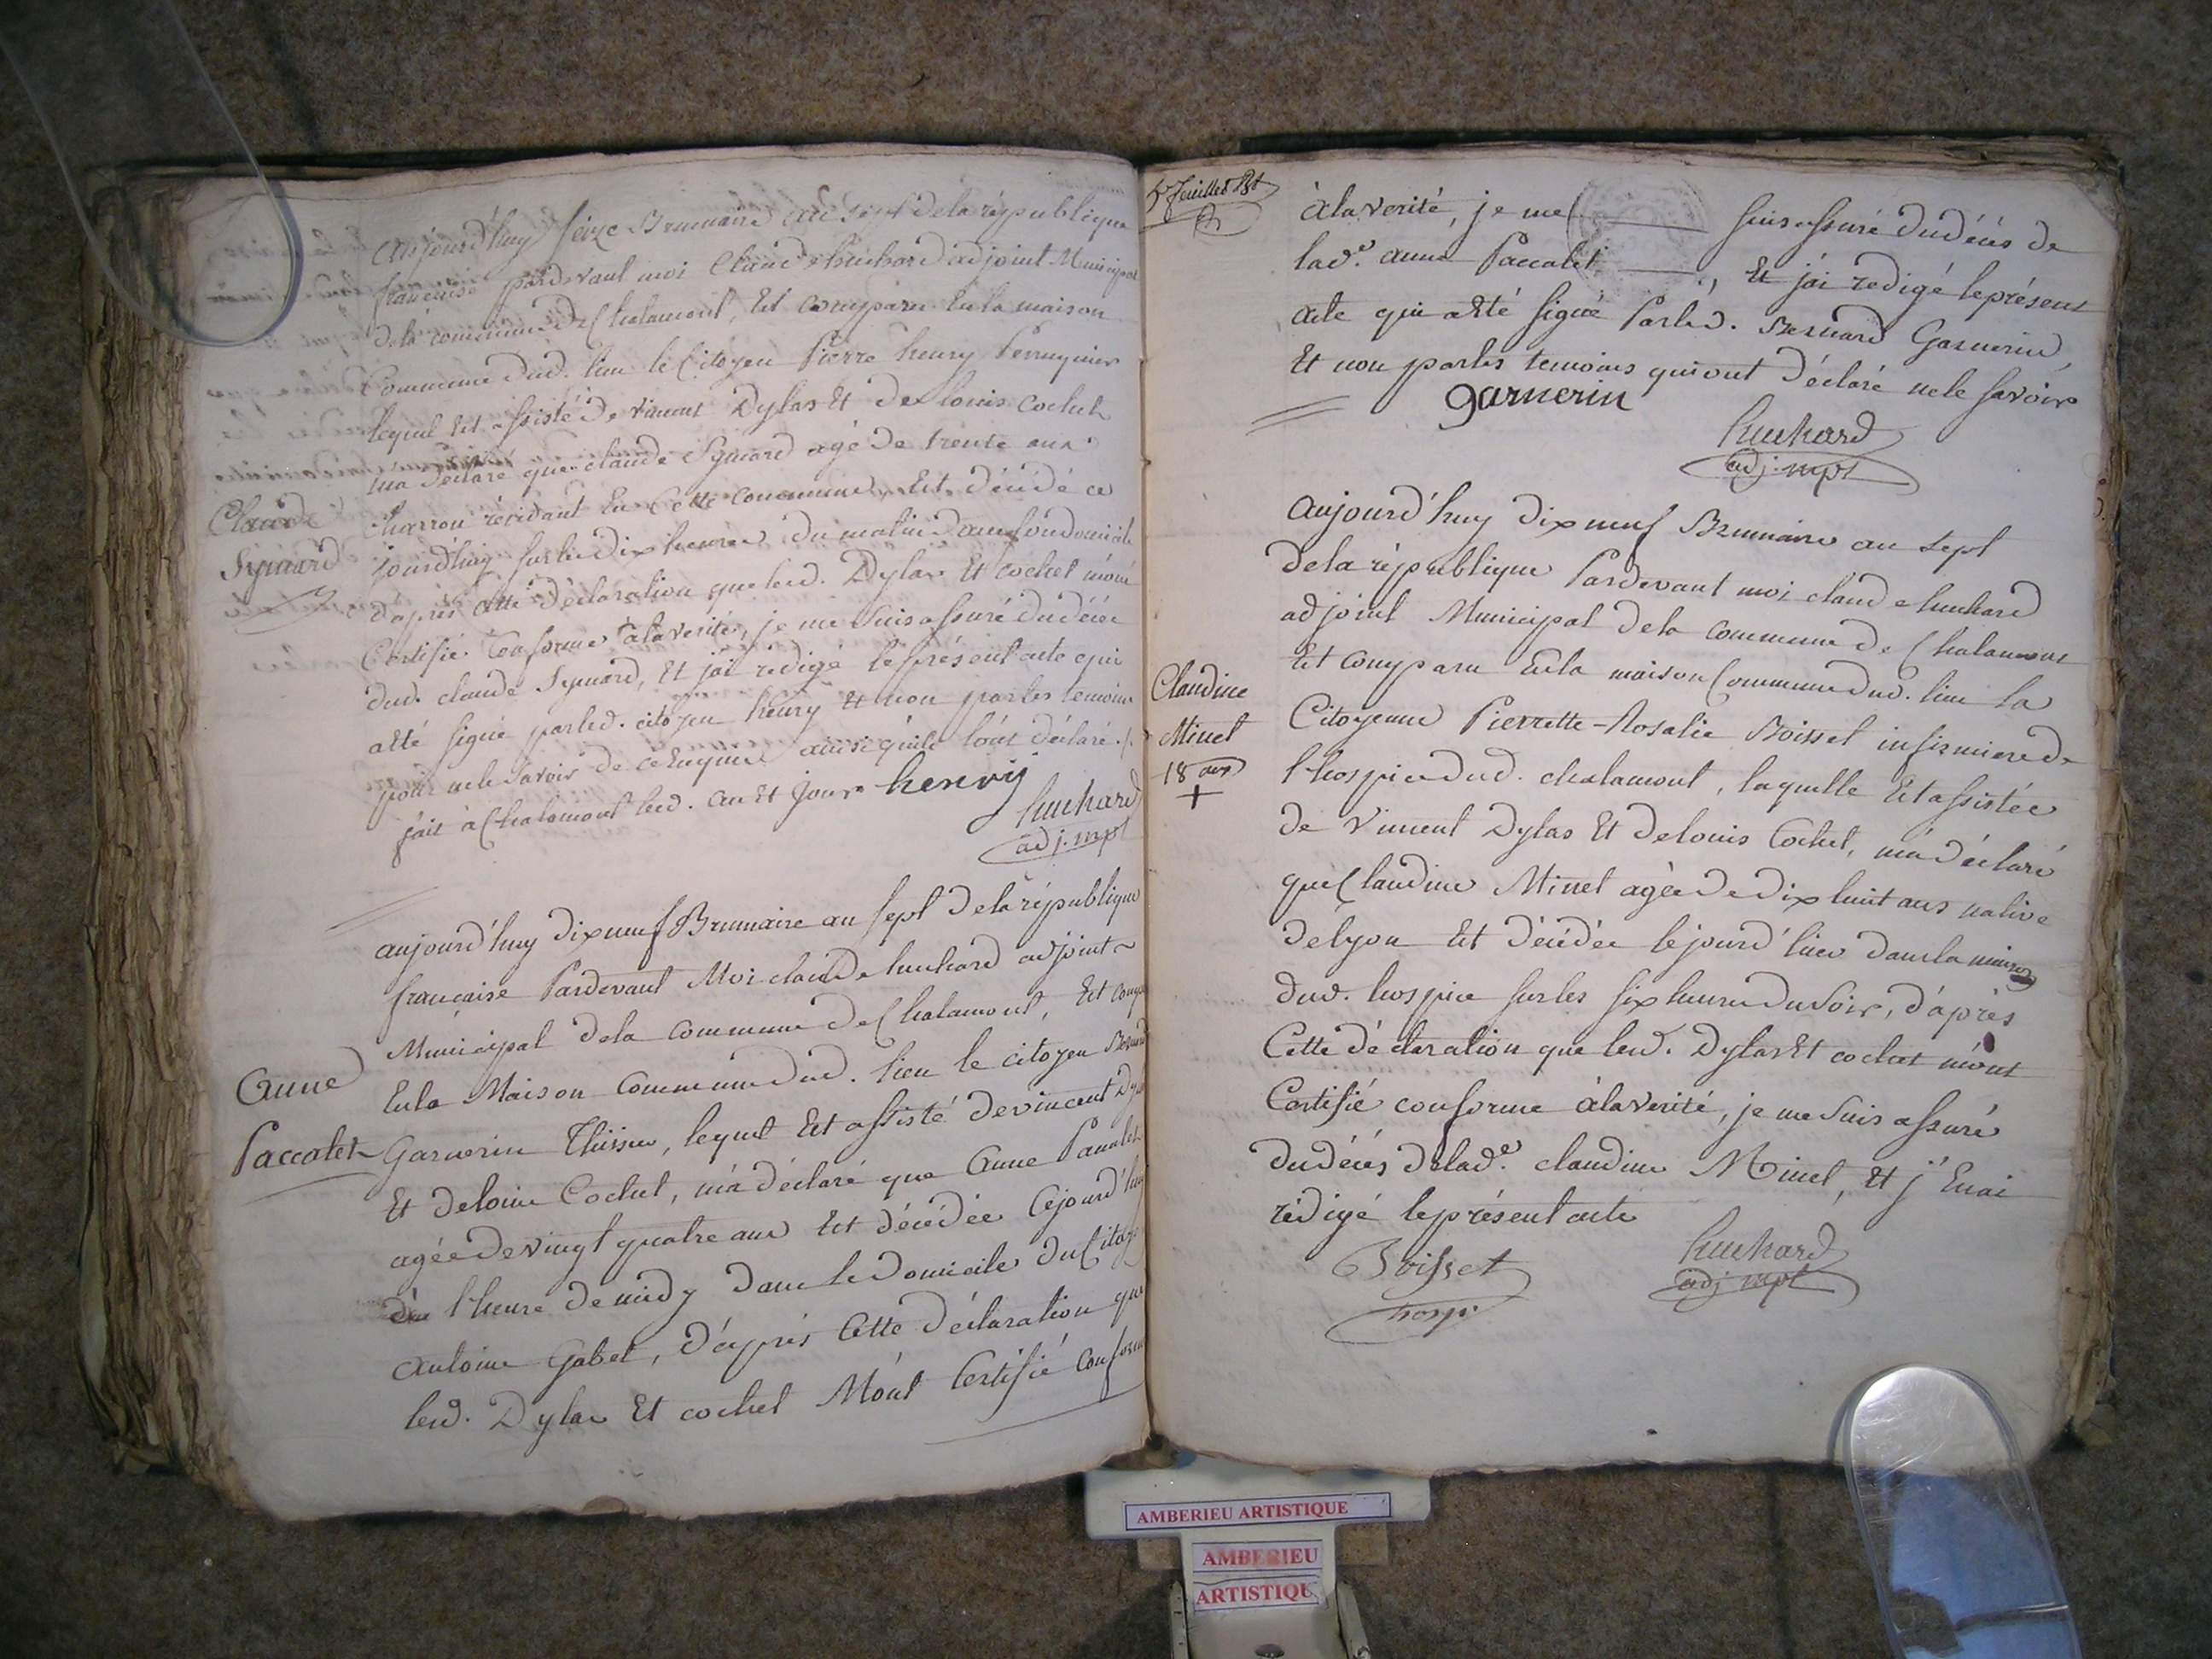 aujourd'huy seize Brumaire an sept de la république
française pardevant moi Claude huchard adjoint Municipal
de la commune de Chalamont, Est comparu En la maison
Commune dud. lieu le Citoyen Pierre henry Perruquier
lequel Est assisté de vincent Dylas Et de louis cochet
m'a déclaré que claude Symard agé de trente ans
Claude
Symard
charron résidant En Cette commune, Est décédé ce
jourd'huy sur les dix heures du matin dans son domicile
d'après cette déclaration que lesd. Dylas Et cochet m'ont
Certifié Conforme à la verité, je me suis assuré du décès
dud. claude Symard, Et j'ai rédigé le présent acte qui
a Eté signé par led. citoyen henry Et non par les temoins
pour ne le savoir de ce Enquis ainsi qu'ils l'ont déclaré
fait à Chalamont lesd. an Et jour henry
huchard
adj. mpl
aujourd'huy dix neuf Brumaire an sept de la république
française Pardevant Moi claude huchard adjoint
Municipal de la commune de Chalamont, Est comp
Anne
Paccalet
En la Maison Commune dud. lieu le citoyen Bernard
Garnerin Thissier, lequel Est assisté de vincent Dy
Et de louis Cochet, m'a déclaré que Anne Paccalet
agée de vingt quatre ans Est décédée Cejourd'hui
l'heure de midy dans le Domicile du Citoy
antoine Gabet, d'après Cette déclaration que
lesd. Dylas Et cochet M'ont Certifié Conforme
5e feuillet Bst
à la verité, je me suis assuré du décès de
lade. anne Paccalet, Et j'ai redigé le présent
acte qui a Eté signé Par led. Bernard Garnerin
Et non par les temoins qui ont déclaré ne le savoir
garnerin
huchard
adj. mpl
aujourd'huy dix neuf Brumaire an sept
de la république Pardevant moi claude huchard
adjoint Municipal de la commune de Chalamont
Est comparu En la maison Commune dud. lieu la
Claudine
Minet
18 ans
+
Citoyenne Pierrette-Rosalie Boisset infirmiere de
l'hospice dud. chalamont, laquelle Est assistée
de Vincent Dylas Et de louis Cochet, m'a déclaré
que Claudine Minet agée de dix huit ans native
de lyon Est décédée le jourd'hier dans la maison
dud. hospice sur les six heures du soir, d'après
Cette déclaration que lesd. Dylas Et cochet m'ont
Certifié conforme à la verité, je me suis assuré
du décès de lade. claudine Minet, Et j'En ai
rédigé le présent acte
Boisset
hosp.
huchard
adj mpl
AMBERIEU ARTISTIQUE
AMBERIEU
ARTISTIQU